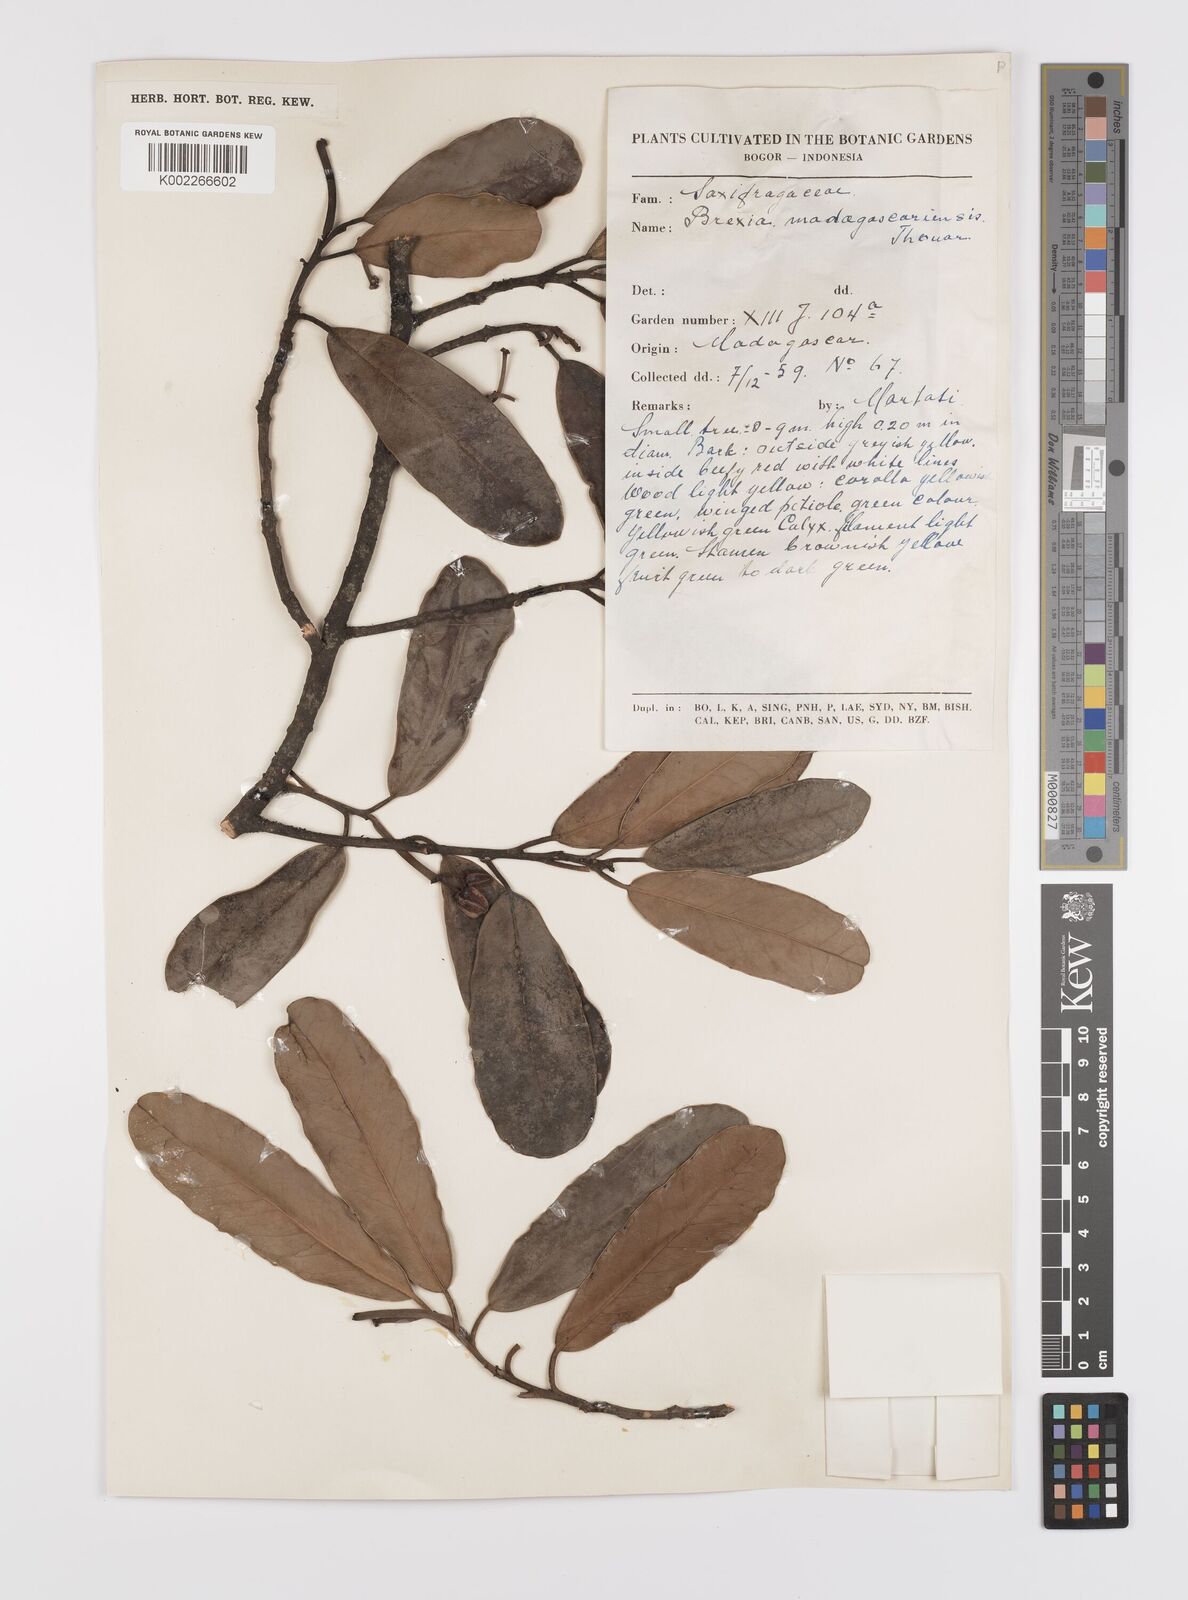 HERB. HORT. BOT. REG. KEW.
ROYAL BOTANIC GARDENS KEW
K002266602
PLANTS CULTIVATED IN THE BOTANIC GARDENS
BOGOR — INDONESIA
Fam. : Saxifragaceae.
Name : Brexia madagascariensis.
Thouar.
Det. : dd.
Garden number : XIII J. 104a
Origin : Madagascar.
Collected dd. : 7/12-59. No 67.
Remarks : by : Martati.
Small tree 8-9 m. high 0.20 m in
diam. Bark: outside greyish yellow.
inside beefy red with white lines
Wood light yellow: corolla yellowish
green, winged petiole, green colour.
Yellowish green Calyx. filament light
green. Stamen brownish yellow
fruit green to dark green.
Dupl. in : BO, L, K, A, SING, PNH, P, LAE, SYD, NY, BM, BISH.
CAL, KEP, BRI, CANB, SAN, US, G, DD. BZF.
inches
centimeters
Don Williams
M000827
Royal Botanic Gardens
Kew
0 1 2 3 4 5 6 7 8 9 10
cm
copyright reserved